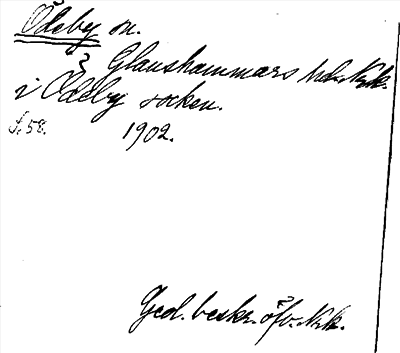 Ödeby sn.
Glanshammars hd. Nrk.
i Ödeby socken.
s. 58. 1902.
Geol. beskr. öfv. Nrk.